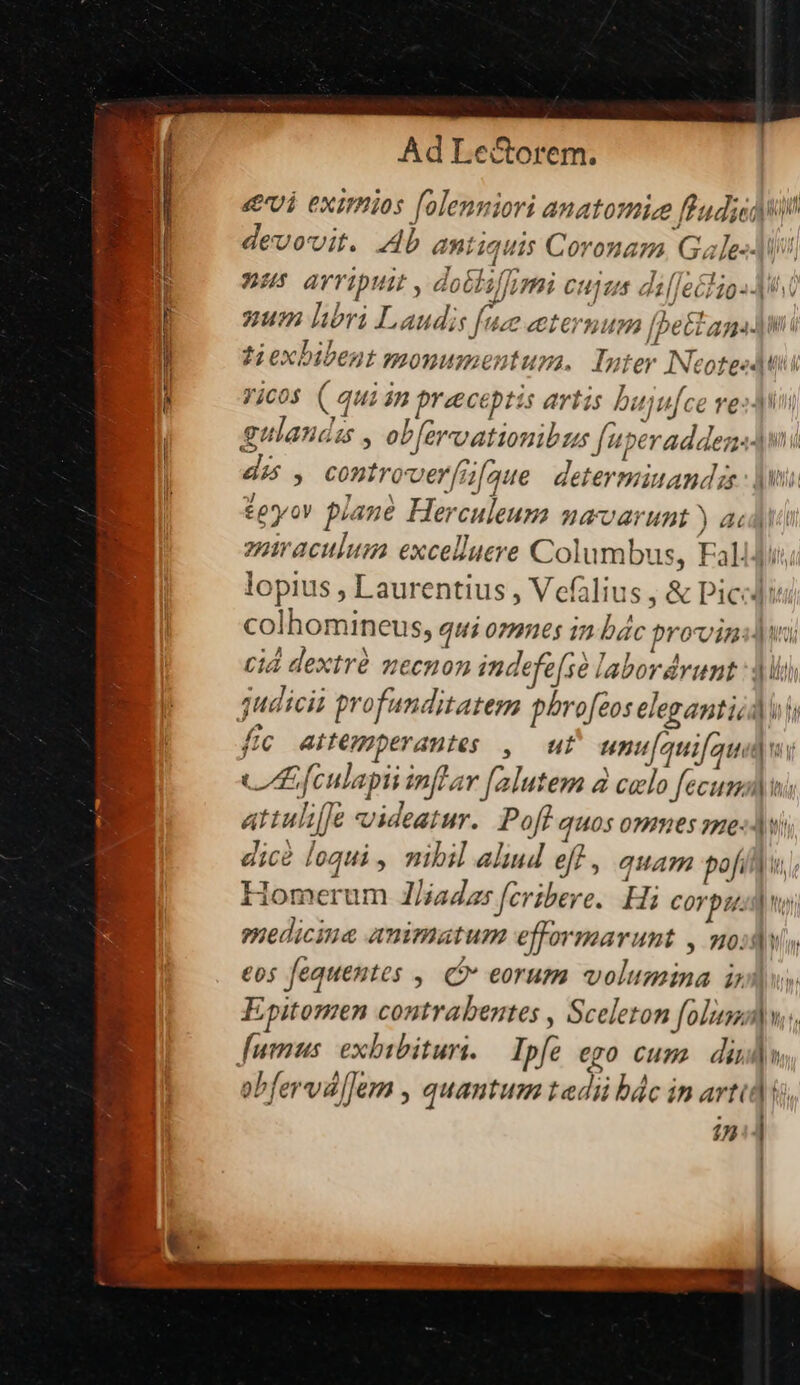 Ad Lectorem.
ævi eximios ſolenniori anatomiæ ſtudio
devovit. Ab antiquis Coronam Gale-
nus arripuit, doctiſſimi cujus diſſectio-
num libri Laudis ſuæ æternum ſpectan-
ti exhibent monumentum. Inter Neote-
ricos (qui in præceptis artis hujuſce re-
gulandis, obſervationibus ſuperadden-
dis, controverſiiſque determinandis
ἔργον planè Herculeum navarunt) ad
miraculum excelluere Columbus, Fal-
lopius, Laurentius, Veſalius, & Pic-
colhomineus, qui omnes in hác provin-
ciá dextrè necnon indefeſsè laborárunt
judicii profunditatem phroſeos elegantiâ
ſic attemperantes, ut unuſquiſque
Æſculapii inſtar ſalutem à cœlo ſecum
attuliſſe videatur. Poſt quos omnes me-
dicè loqui, nihil aliud eſt, quam poſt
Homerum Iliadas ſcribere. Hi corpus
medicinæ animatum efformarunt, nos
eos ſequentes, & eorum volumina in
Epitomen contrahentes, Sceleton ſolum
ſumus exhibituri. Ipſe ego cum diu
obſerváſſem, quantum tædii hác in arte
in-